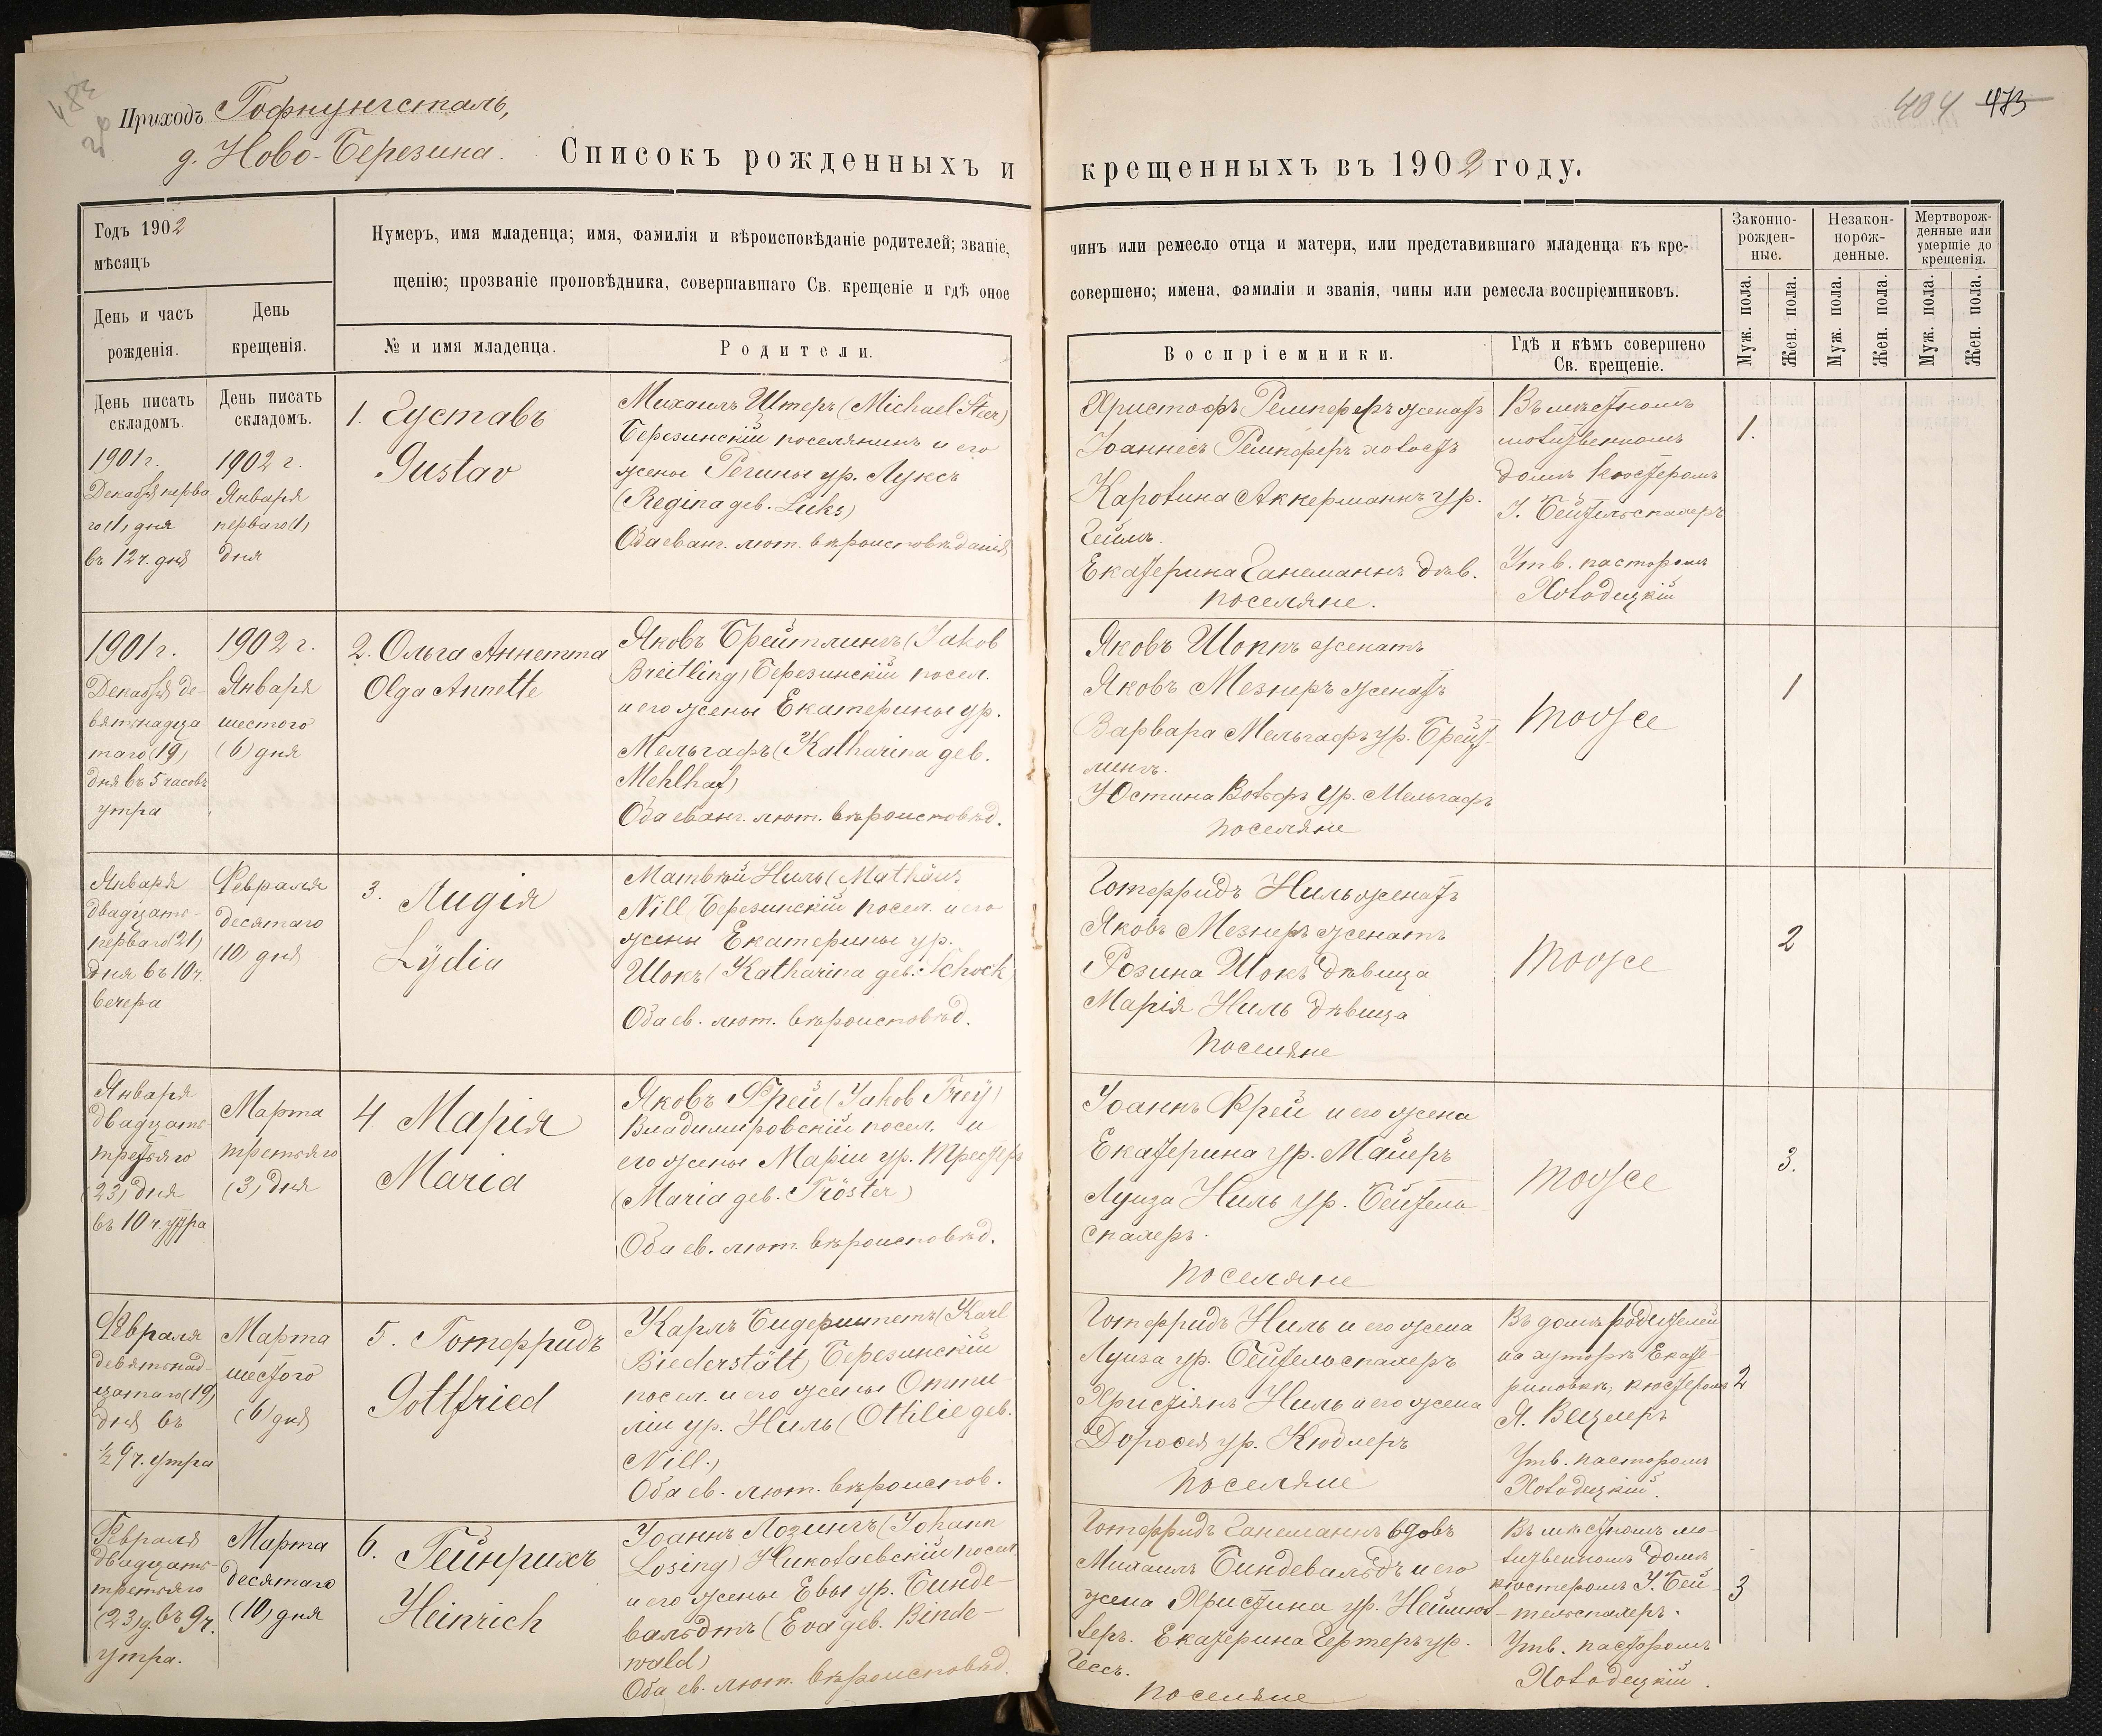 Приходъ Гофнунгсталь,
д. Ново-Березина.
Списокъ рожденныхъ и крещенныхъ въ 1902 году.
404 473
Годъ 1902
мѣсяцъ
День и часъ
рожденія.
День
крещенія.
Нумеръ, имя младенца; имя, фамилія и вѣроисповѣданіе родителей; званіе,
щенію; прозваніе проповѣдника, совершавшаго Св. крещеніе и гдѣ оное
№ и имя младенца.
Родители.
чинъ или ремесло отца и матери, или представившаго младенца къ кре-
совершено; имена, фамиліи и званія, чины или ремесла воспріемниковъ.
Воспріемники.
Гдѣ и кѣмъ совершено
Св. крещеніе.
Законно-
рожден-
ные.
Незакон-
норож-
денные.
Мертворож-
денные или
умершіе до
крещенія.
Муж. пола.
Жен. пола.
Муж. пола.
Жен. пола.
Муж. пола.
Жен. пола.
День писать
складомъ.
День писать
складомъ.
1901 г.
Декабря перва
го (1) дня
въ 12 ч. дня
1902 г.
Января
перваго (1)
дня
1. Густавъ
Gustav
Михаилъ Штеръ (Michael Ster)
Березинскій поселянинъ и его
жены Регины ур. Луксъ
(Regina geb. Luks)
Оба еванг. лют. вѣроисповѣданія
Христофъ Ремпферъ женатъ
Іоаннесъ Ремпферъ холостъ
Каролина Аккерманнъ ур.
Геймъ.
Екатерина Ганеманнъ дѣв.
поселяне.
Въ мѣстномъ
молитвенномъ
домѣ кюстеромъ
І. Бейтельспахеръ
Утв. пасторомъ
Холодецкій
1.
1901 г.
Декабря де-
вятнадца
таго (19)
дня въ 5 часовъ
утра
1902 г.
Января
шестого
(6) дня
2. Ольга Аннетта
Olga Annette
Яковъ Брейтлингъ (Jakob
Breitling) Березинскій посел.
и его жены Екатерины ур.
Мельгафъ (Katharina geb.
Mehlhaf)
Оба еванг. лют. вѣроисповѣд.
Яковъ Шоппъ женатъ
Яковъ Мезнеръ женатъ
Варвара Мельгафъ ур. Брейт-
лингъ.
Юстина Вольфъ ур. Мельгафъ
поселяне
тоже
1
Января
двадцать-
перваго (21)
дня въ 10 ч.
вечера
Февраля
десятаго
(10) дня
3. Лидія
Lydia
Матвѣй Ниль (Mathäus
Nill) Березинскій посел. и его
жены Екатерины ур.
Шокъ (Katharina geb. Schock
Оба ев. лют. вѣроисповѣд.
Готфридъ Ниль женатъ
Яковъ Мезнеръ женатъ
Розина Шокъ дѣвица
Марія Ниль дѣвица
поселяне
тоже
2
Января
двадцать-
третьяго
(23) дня
въ 10 ч. утра
Марта
третьяго
(3) дня
4 Марія
Maria
Яковъ Фрей (Jakob Frey)
Владимировскій посел. и
его жены Маріи ур. Трестеръ
(Maria geb. Tröster)
Оба ев. лют. вѣроисповѣд.
Іоаннъ Фрей и его жена
Екатерина ур. Майеръ
Луиза Ниль ур. Бейтель-
спахеръ.
поселяне
тоже
3.
Февраля
девятнад-
цатаго (19)
дня въ
½ 9 ч. утра
Марта
шестого
(6) дня
5. Готфридъ
Gottfried
Карлъ Бидерштетъ (Karl
Biederstätt) Березинскій
посел. и его жены Отти-
ліи ур. Ниль (Ottilie geb.
Nill.)
Оба ев. лют. вѣроисповѣд.
Готфридъ Ниль и его жена
Луиза ур. Бейтельспахеръ
Христіянъ Ниль и его жена
Доротея ур. Кюблеръ
поселяне
Въ домѣ родителей
на хуторѣ Екате-
риновкѣ, кюстеромъ
Я. Вецлеръ
Утв. пасторомъ
Холодецкій.
2
Февраля
двадцать-
третьяго
(23) д. въ 9 ч.
утра.
Марта
десятаго
(10) дня
6. Гейнрихъ
Heinrich
Іоаннъ Лозингъ (Johann
Losing) Николаевскій посел.
и его жены Евы ур. Бинде-
вальдтъ (Eva geb. Binde-
wald)
Оба ев. лют. вѣроисповѣд.
Готфридъ Ганеманнъ вдовъ
Михаилъ Биндевальдъ и его
жена Христина ур. Неймил-
леръ. Екатерина Гертеръ ур.
Гессъ.
поселяне
Въ мѣстномъ мо-
литвенномъ домѣ
кюстеромъ І. Бей-
тельспахеръ.
Утв. пасторомъ
Холодецкій.
3